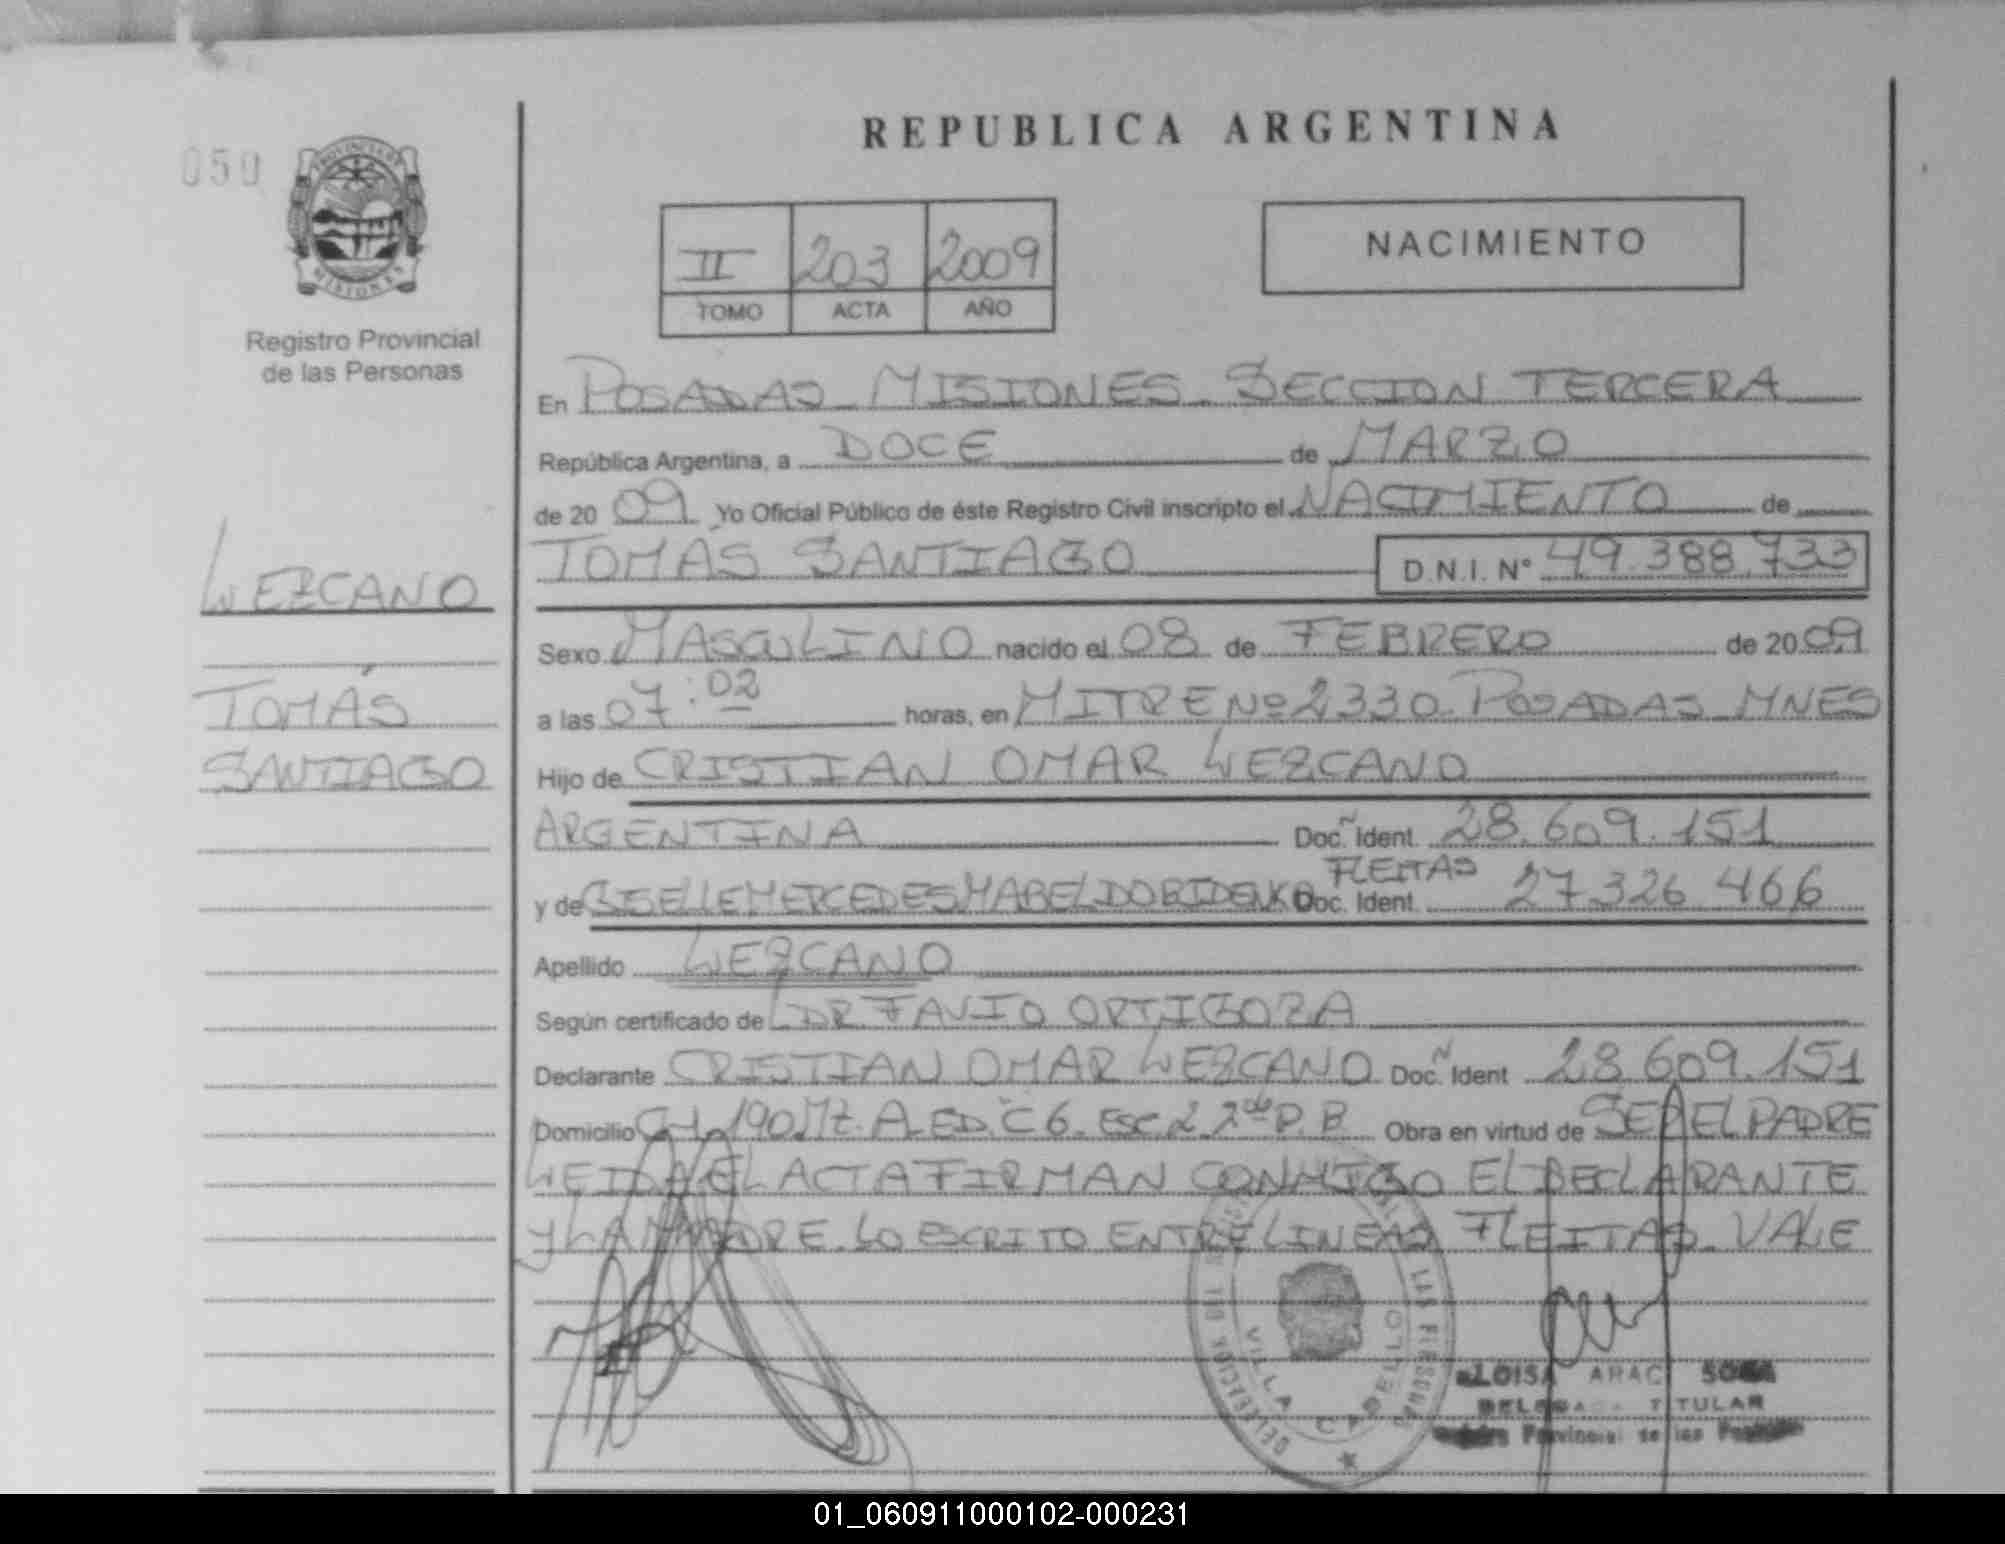 REPUBLICA ARGENTINA
050
PROVINCIA DE
MISIONES
Registro Provincial
de las Personas
II 203 2009
TOMO ACTA AÑO
NACIMIENTO
En POSADAS - MISIONES - SECCION TERCERA
República Argentina, a DOCE de MARZO
de 20 09 Yo Oficial Público de éste Registro Civil inscripto el NACIMIENTO de
TOMÁS SANTIAGO D.N.I. Nº 49.388.733
LEZCANO
TOMÁS
SANTIAGO
Sexo MASCULINO nacido el 08 de FEBRERO de 20 09
a las 07:02 horas, en MITRE Nº 2330 - POSADAS - MNES
Hijo de CRISTIAN OMAR LEZCANO
ARGENTINA Doc. Ident. 28.609.151
FLEITAS
y de GISELLE MERCEDES MABEL DOBIDENKO Doc. Ident. 27.326.466
Apellido LEZCANO
Según certificado de DR FAVIO ORTIGOZA
Declarante CRISTIAN OMAR LEZCANO Doc. Ident 28.609.151
Domicilio CH 190 MZ. A. ED. C 6. ESC. 2 2do P. B Obra en virtud de SER EL PADRE
LEIDA EL ACTA FIRMAN CONMIGO EL DECLARANTE
Y LA MADRE. LO ESCRITO ENTRE LINEAS FLEITAS. VALE
DELEGACION DEL REGISTRO
LAS PERSONAS
VILLA CABELLO
ARAC SOSA
TITULAR
Provincial de las
01_060911000102-000231